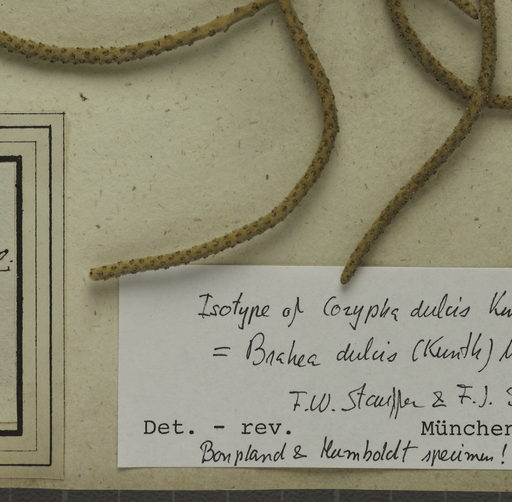 Isotype of Corypha dulcis
= Brahea dulcis (Kunth)
F.W. Stauffer & F.J.
Det. - rev. München
Bonpland & Humboldt specimen!